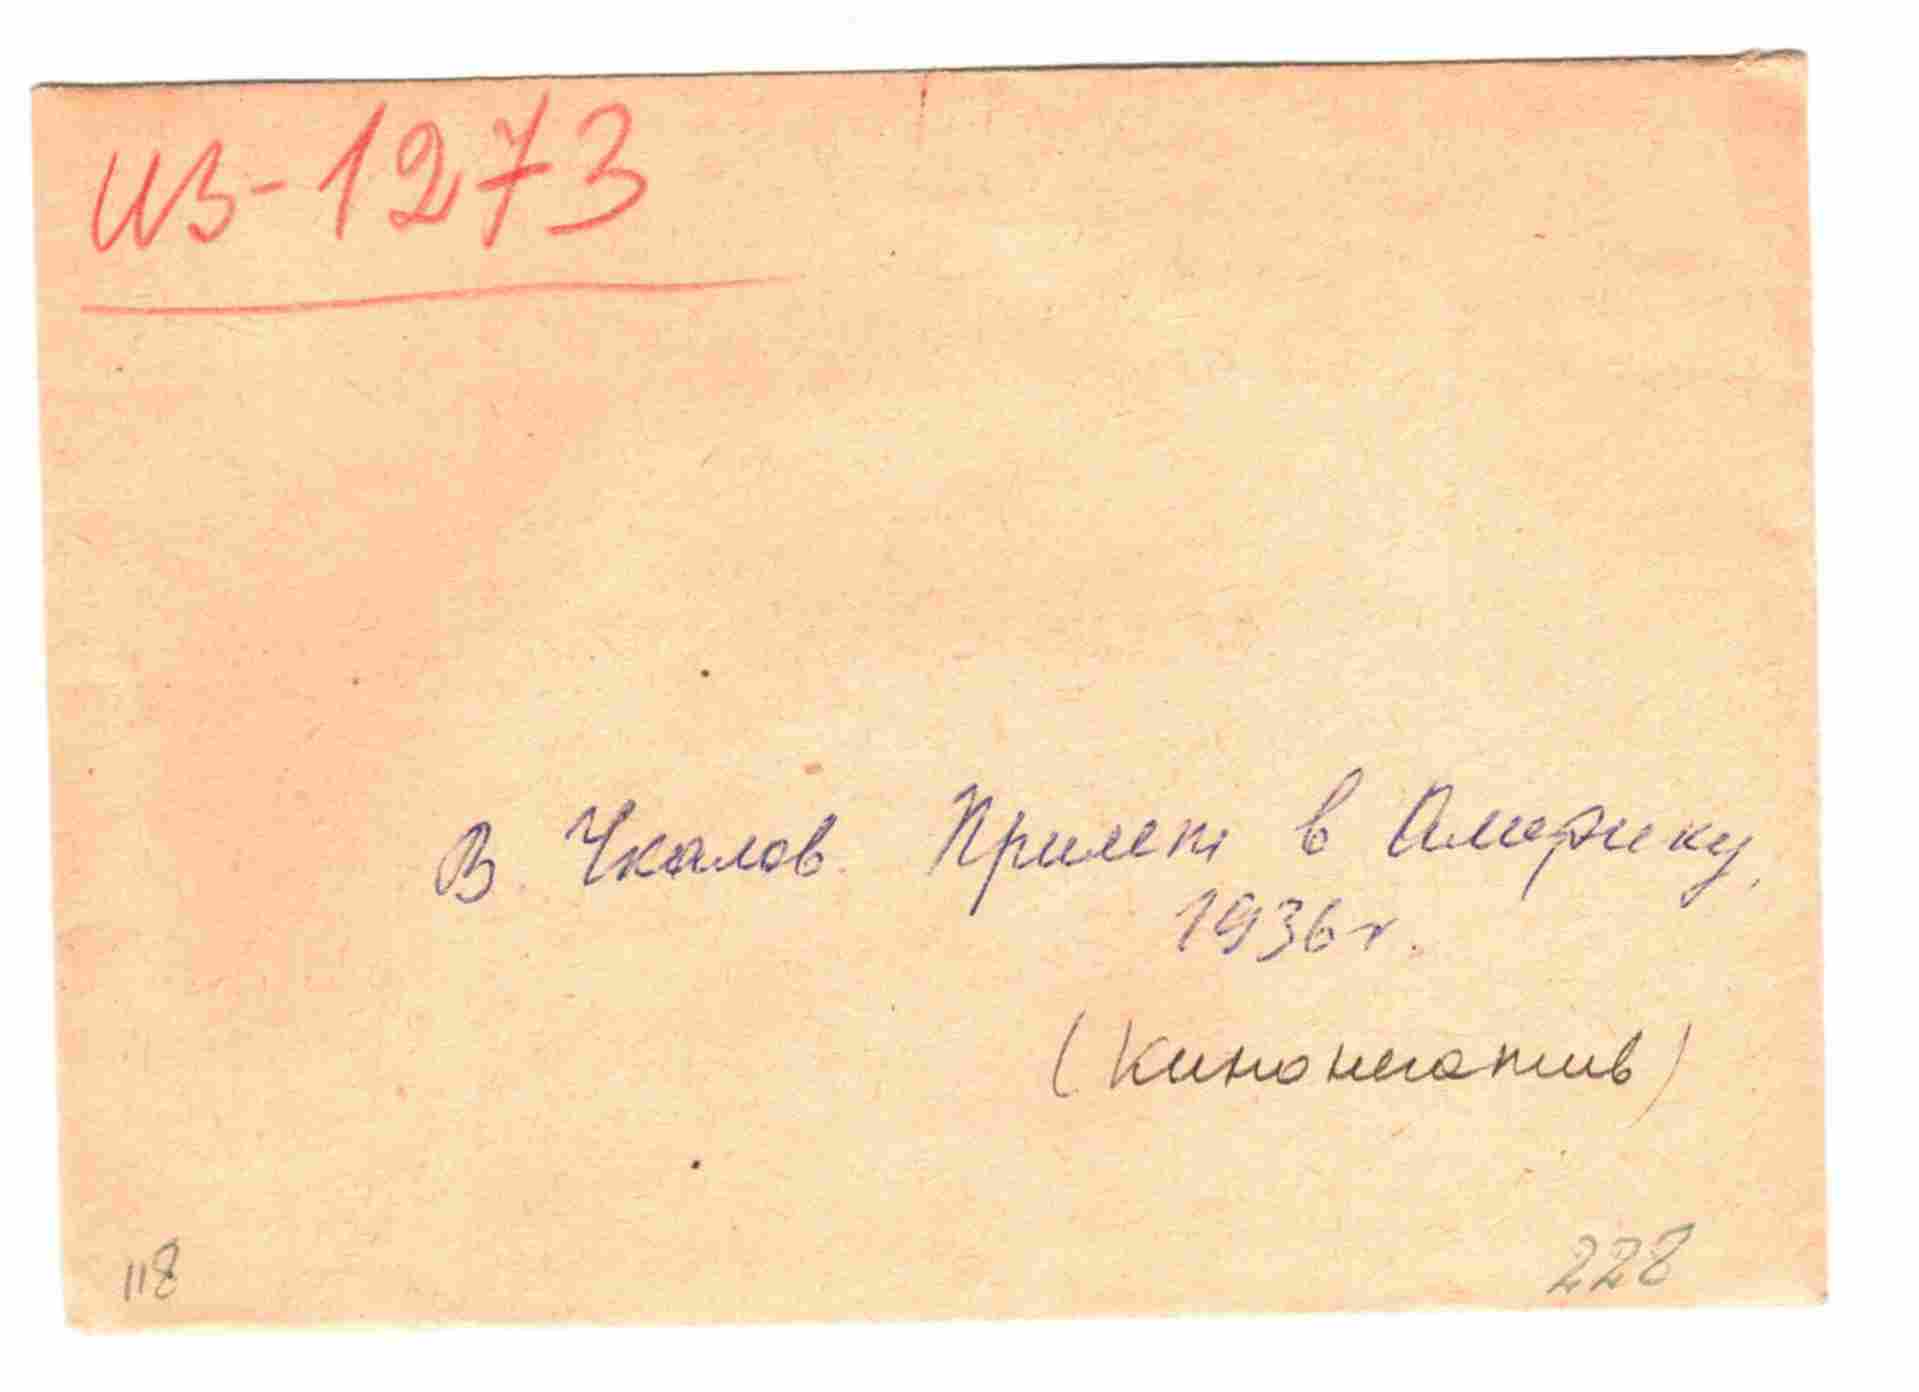 ИЗ-1273
В. Чкалов. Прилет в Америку,
1936 г.
(Кинонегатив)
118
228